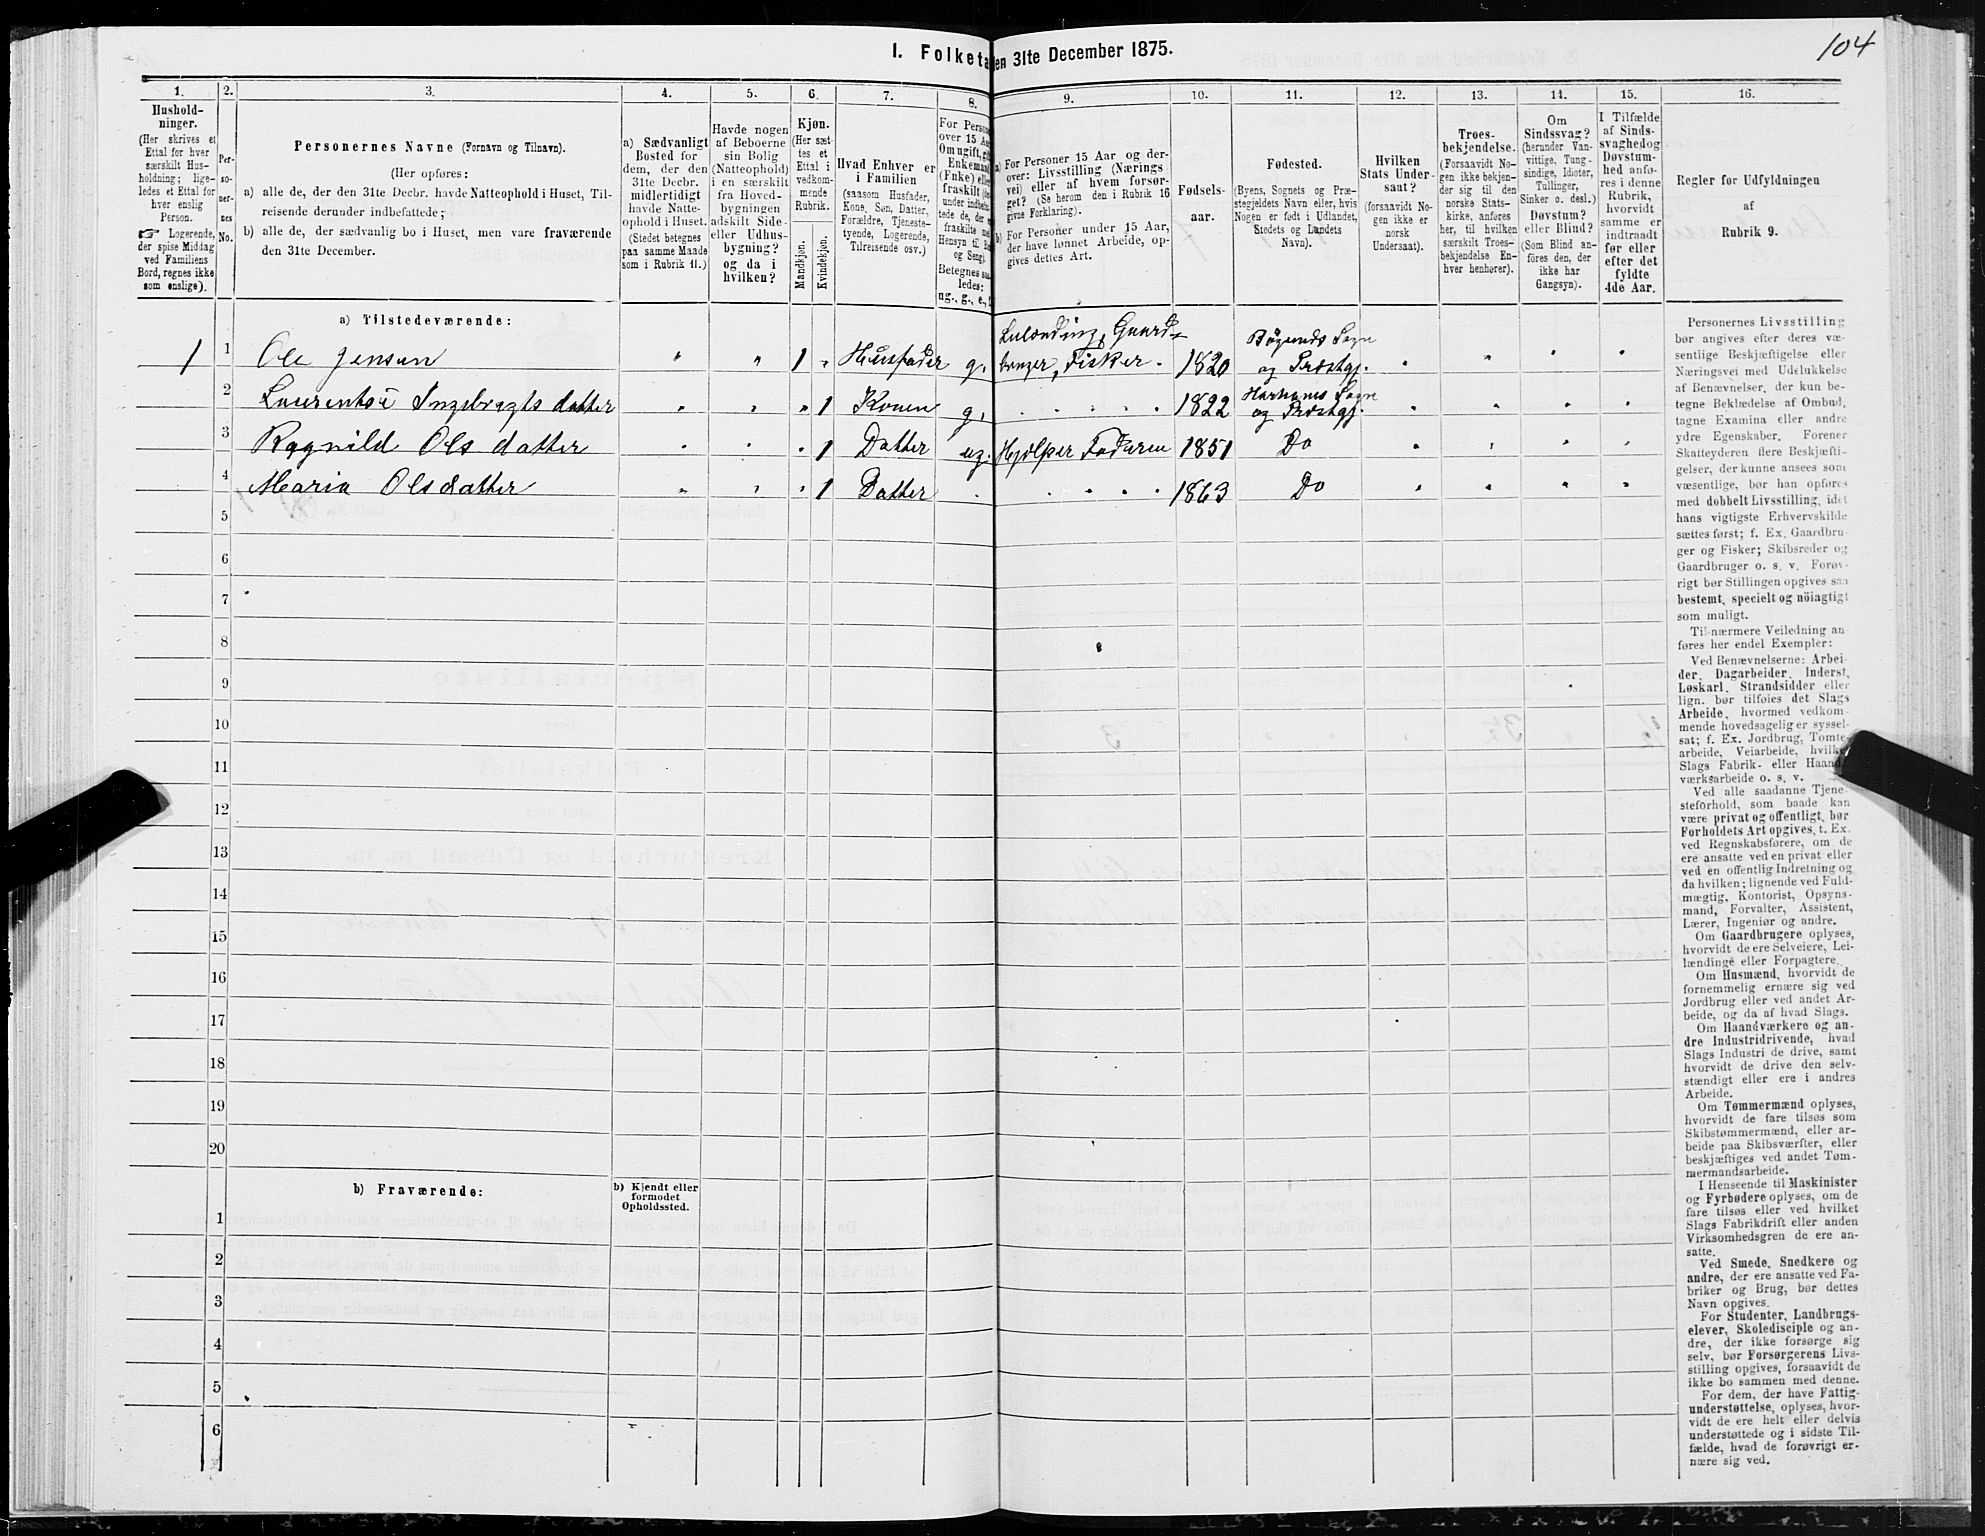 104
I. Folketa en 31te December 1875.
1. 2. 3. 4. 5. 6. 7. 8. 9. 10. 11. 12. 13. 14. 15. 16.
Hushold-
ninger.
(Her skrives et
Ettal for hver
særskilt Hus-
holdning; lige-
ledes et Ettal for
hver enslig
Person.
☞ Logerende,
der spise Middag
ved Familiens
Bord, regnes ikke
som enslige).
Per-
so-
ner-
nes
No.
Personernes Navne (Fornavn og Tilnavn).
(Her opføres:
a) alle de, der den 31te Decbr. havde Natteophold i Huset, Til-
reisende derunder indbefattede;
b) alle de, der sædvanlig bo i Huset, men vare fraværende
den 31te December.
a) Sædvanligt
Bosted for
dem, der den
31te Decbr.
midlertidigt
havde Natte-
ophold i Huset.
(Stedet betegnes
paa samme Maade
som i Rubrik 11.)
Havde nogen
af Beboerne
sin Bolig
(Natteophold)
i en særskilt
fra Hoved-
bygningen
adskilt Side-
eller Udhus-
bygning?
og da i
hvilken?
Kjøn.
(Her sæt-
tes et
Ettal i
vedkom-
mende
Rubrik.
Mandkjøn.
Kvindekjøn.
Hvad Enhver er
i Familien
(saasom Husfader,
Kone, Søn, Datter,
Forældre, Tjeneste-
tyende, Logerende,
Tilreisende osv.)
For Perso
over 15 Aa
Om ugift, gi
Enkemand
(Fnke) elle
fraskilt (de
under indbe
tede de, der
fraskilte me
Hensyn til B
og Seng).
Betegnes saa
ledes:
ug., g., e.,
a) For Personer 15 Aar og der-
over: Livsstilling (Nærings-
vei) eller af hvem forsør-
get? (Se herom den i Rubrik 16
givne Forklaring).
b) For Personer under 15 Aar,
der have lønnet Arbeide, op-
gives dettes Art.
Fødsels-
aar.
Fødested.
(Byens, Sognets og Præ-
stegjeldets Navn eller, hvis
Nogen er født i Udlandet,
Stedets og Landets
Navn).
Hvilken
Stats Under-
saat?
(forsaavidt No-
gen ikke er
norsk
Undersaat).
Troes-
bekjendelse.
(Forsaavidt No-
gen ikke bekjen-
der sig til den
norske Stats-
kirke, anføres
her, til hvilken
særskilt Troes-
bekjendelse En-
hver henhører).
Om
Sindssvag?
(herunder Van-
vittige, Tung-
sindige, Idioter,
Tullinger,
Sinker o. desl.)
Døvstum?
eller Blind?
(Som Blind an-
føres den, der
ikke har
Gangsyn).
I Tilfælde
af Sinds-
svaghedog
Døvstum-
hed anfø-
res i denne
Rubrik,
hvorvidt
samme er
indtraadt
før eller
efter det
fyldte
4de Aar.
Regler for Udfyldningen
af
Rubrik 9.
a) Tilstedeværende:
1 1 Ole Jensen " " 1 " Husfader g. Leilænding, Gaard-
bruger, Fisker. 1820 Sogn
og Præstgj.
2 Ingebregts datter 1 Konen g. 1822 Sogn
og Præstgj.
3 Ragnild Ols datter 1 Datter ug. Hjælper Faderen 1851 Do
4 Maria Olsdatter 1 Datter 1863 Do
5
6
7
8
9
10
11
12
13
14
15
16
17
18
19
20
b) Fraværende:
b) Kjendt eller
formodet
Opholdssted.
1
2
3
4
5
6
Personernes Livsstilling
bør angives efter deres væ-
sentlige Beskjæftigelse eller
Næringsvei med Udelukkelse
af Benævnelser, der kun be-
tegne Beklædelse af Ombud,
tagne Examina eller andre
ydre Egenskaber. Forener
Skatteyderen flere Beskjæfti-
gelser, der kunne ansees som
væsentlige, bør han opføres
med dobbelt Livsstilling, idet
hans vigtigste Erhvervskilde
sættes først; f. Ex. Gaardbru-
ger og Fisker; Skibsreder og
Gaardbruger o. s. v. Forøv-
rigt bør Stillingen opgives saa
bestemt, specielt og nöiagtigt
som muligt.
Til nærmere Veiledning an
føres her endel Exempler:
Ved Benævnelserne: Arbei-
der, Dagarbeider, Inderst,
Løskarl, Strandsidder eller
lign. bør tilføies det Slags
Arbeide, hvormed vedkom-
mende hovedsagelig er syssel-
sat; f. Ex. Jordbrug, Tomte-
arbeide, Veiarbeide, hvilke
Slags Fabrik- eller Haand-
værksarbeide o. s. v.
Ved alle saadanne Tjene-
steforhold, som baade kan
være privat og offentligt, bør
Forholdets Art opgives, t. Ex.
ved Regnskabsførere, om de
ere ansatte ved en privat eller
ved en offentlig Indretning og
da hvilken; lignende ved Fuld-
mægtig, Kontorist, Opsyns-
mand, Forvalter, Assistent,
Lærer, Ingeniør og andre.
Om Gaardbrugere oplyses,
hvorvidt de ere Selveiere, Lei-
lændinge eller Forpagtere.
Om Husmænd, hvorvidt de
fornemmelig ernære sig ved
Jordbrug eller ved andet Ar-
beide, og da af hvad Slags.
Om Haandværkere og an-
dre Industridrivende, hvad
Slags Industri de drive, samt
hvorvidt de drive den selv-
stændigt eller ere i andres
Arbeide.
Om Tømmermænd oplyses,
hvorvidt de fare tilsøs som
Skibstømmermænd, eller ar-
beide paa Skibsværfter, eller
beskjæftiges ved andet Tøm-
mermandsarbeide.
I Henseende til Maskinister
og Fyrbødere oplyses, om de
fare tilsøs eller ved hvilket
Slags Fabrikdrift eller anden
Virksomhedsgren de ere an-
satte.
Ved Smede, Snedkere og
andre, der ere ansatte ved Fa-
briker og Brug, bør dettes
Navn opgives.
For Studenter, Landbrugs-
elever, Skoledisciple og an-
dre, der ikke forsørge sig
selv, bør Forsørgerens Livs-
stilling opgives, forsaavidt de
ikke bo sammen med denne.
For dem, der have Fattig-
understøttelse, oplyses, hvor-
vidt de ere helt eller delvis
understøttede og i sidste Til-
fælde, hvad de forøvrigt er-
nære sig ved.